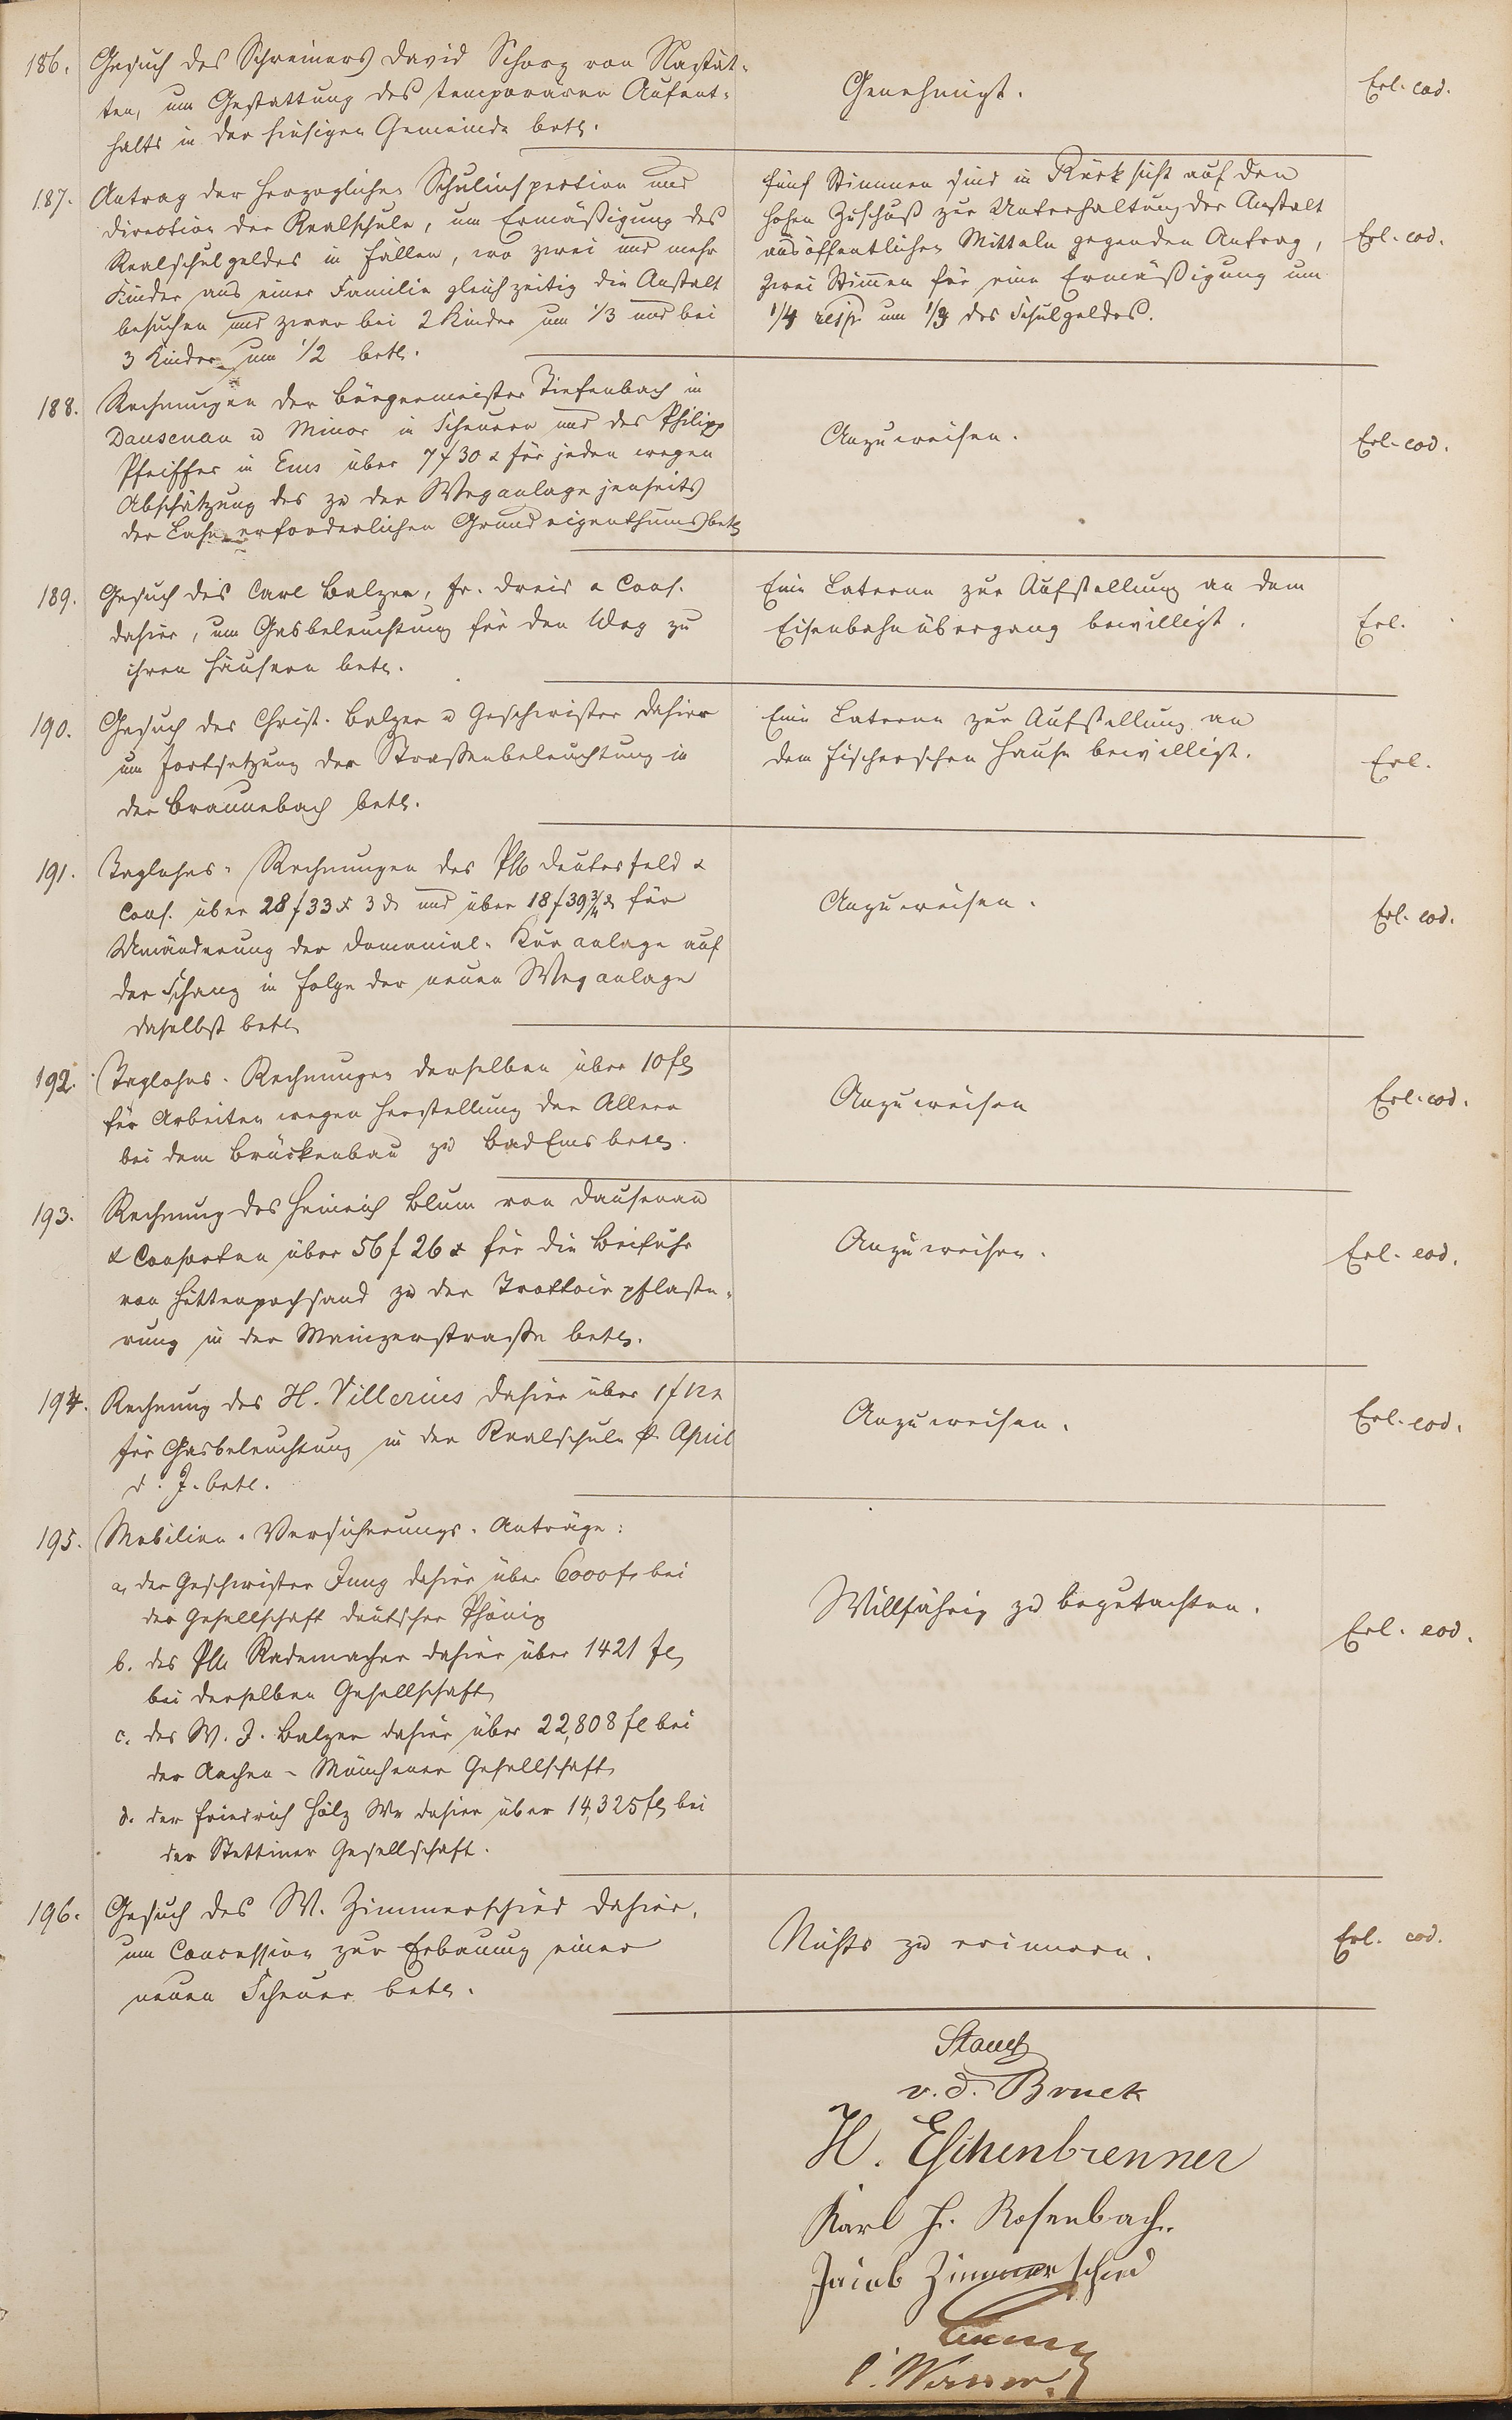 186. Gesuch des Schreiners David Schorg von Nastät-
ten, um Gestattung des temporären Aufent-
halts in der hiesigen Gemeinde betr.
Genehmigt.
Erl. eod.
187. Antrag der Herzoglichen Schulinspection und
Direction der Realschule, um Ermäßigung des
Realschulgeldes in Fällen, wo zwei und mehr
Kinder aus einer Familie gleichzeitig die Anstalt
besuchen und zwar bei 2 Kinder um 1/3 und bei
3 Kinder um 1/2 betr.
Fünf Stimmen sind in Rücksicht auf den
hohen Zuschuß zur Unterhaltung der Anstalt
aus öffentlichen Mitteln gegen den Antrag,
zwei Stimmen für eine Ermäßigung um
1/4 resp. um 1/3 des Schulgeldes.
Erl. eod.
188. Rechnungen der Bürgermeister Tiefenbach in
Dausenau u Minor in Scheuern und des Philipp
Pfeiffer in Ems über 7 f 30 x für jeden wegen
Abschätzung des zu der Weganlage jenseits
der Lahn erforderlichen Grundeigenthums betr
Anzuweisen.
Erl. eod.
189. Gesuch des Carl Balzer, Fr. Dreis & Cons.
dahier, um Gasbeleuchtung für den Weg zu
ihren Häusern betr.
Eine Laterne zur Aufstellung an dem
Eisenbahnübergang bewilligt.
Erl.
190. Gesuch des Christ. Balzer u Geschwister dahier
um Fortsetzung der Straßenbeleuchtung in
der Braunebach betr.
Eine Laterne zur Aufstellung an
dem Fischerschen Hause bewilligt.
Erl.
191. Taglohns-Rechnungen des Ph. Deutesfeld &
Cons. über 28 f 33 x 3 d und über 18 f 39 3/4 x für
Umänderung der Domanial-Kuranlage auf
der Schanz in Folge der neuen Weganlage
daselbst betr
Anzuweisen.
Erl. eod.
192. Taglohns-Rechnungen derselben über 10 fl
für Arbeiten wegen Herstellung der Alleen
bei dem Brückenbau zu Bad Ems betr.
Anzuweisen
Erl. eod.
193. Rechnung des Heinrich Blum von Dausenau
& Consorten über 56 f 26 x für die Beifuhr
von Hüttenpochsand zu der Trottoirpflaste-
rung in der Mainzerstraße betr.
Anzuweisen.
Erl. eod.
194. Rechnung des H. Villerius dahier über 1 f 12 x
für Gasbeleuchtung in der Realschule p April
d. J. betr.
Anzuweisen.
Erl. eod.
195. Mobilien-Versicherungs-Anträge:
a, der Geschwister Jung dahier über 6000 fl bei
der Gesellschaft Deutscher Phönix
b. des Ph. Rademacher dahier über 1421 fl
bei derselben Gesellschaft
c. des W. J. Balzer dahier über 22,808 fl bei
der Aachen-Münchener Gesellschaft
d. der Friedrich Hölz Ww dahier über 14,325 fl bei
der Stettiner Gesellschaft.
Willfährig zu begutachten.
Erl. eod.
196. Gesuch des W. Zimmerschied dahier,
um Concession zur Erbauung einer
neuen Scheuer betr.
Nichts zu erinnern.
Erl. eod.
v. d. Bruck
H. Eschenbrenner
Karl H. Rosenbach.
Jacob Zimmerschied